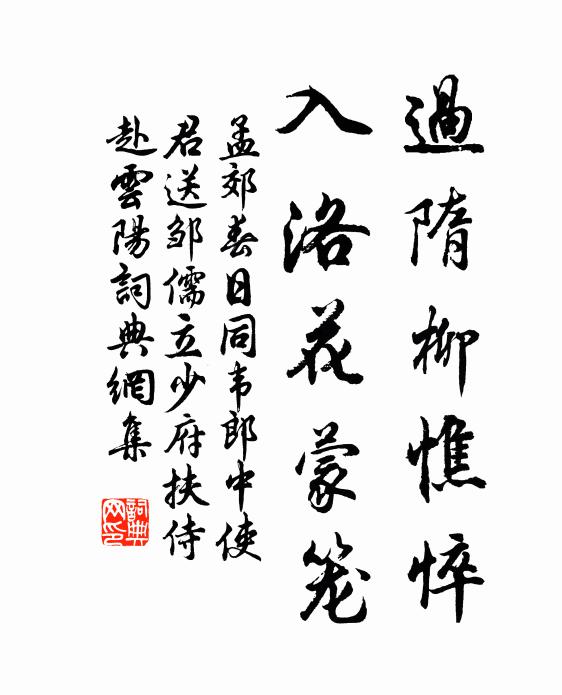 過隋柳憔悴
入洛花蒙笼
孟郊春日同韦郎中使
君送邹儒立少府扶侍
赴雲陽詞典網集
詞典
网印